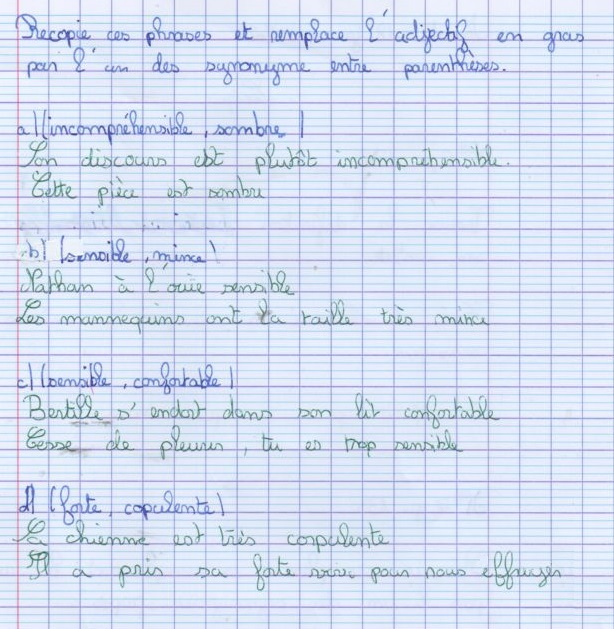 Recopie ces phrases et remplace l'adjectif en gras
par l'un des synonyme entre parenthèses.
a) (incompréhensible, sombre)
Son discours est plutôt incompréhensible.
Cette pièce est sombre
b) (sensible, mince)
Nathan à l'ouïe sensible
Les mannequins ont la taille très mince
c) (sensible, confortable)
Bertille s'endort dans son lit confortable
Cesse de pleurer, tu es trop sensible
d) (forte, copulente)
Sa chienne est très corpulente
Il a pris sa forte voix pour nous effrayer